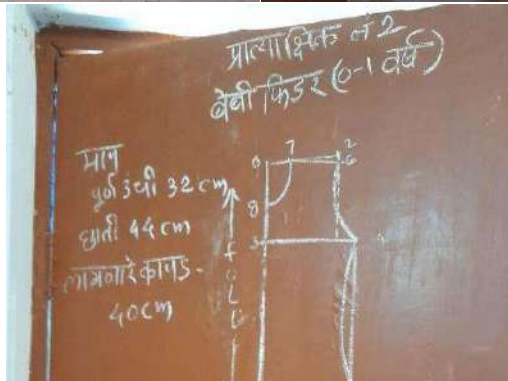 प्रात्याक्षिक नं 2
बेबी फिडर (0-1 वर्ष)
माप
पूर्ण उंची 32 cm
छाती 44 cm
लागणारे कापड -
40cm
0 7 2
6
8
3
FOLD